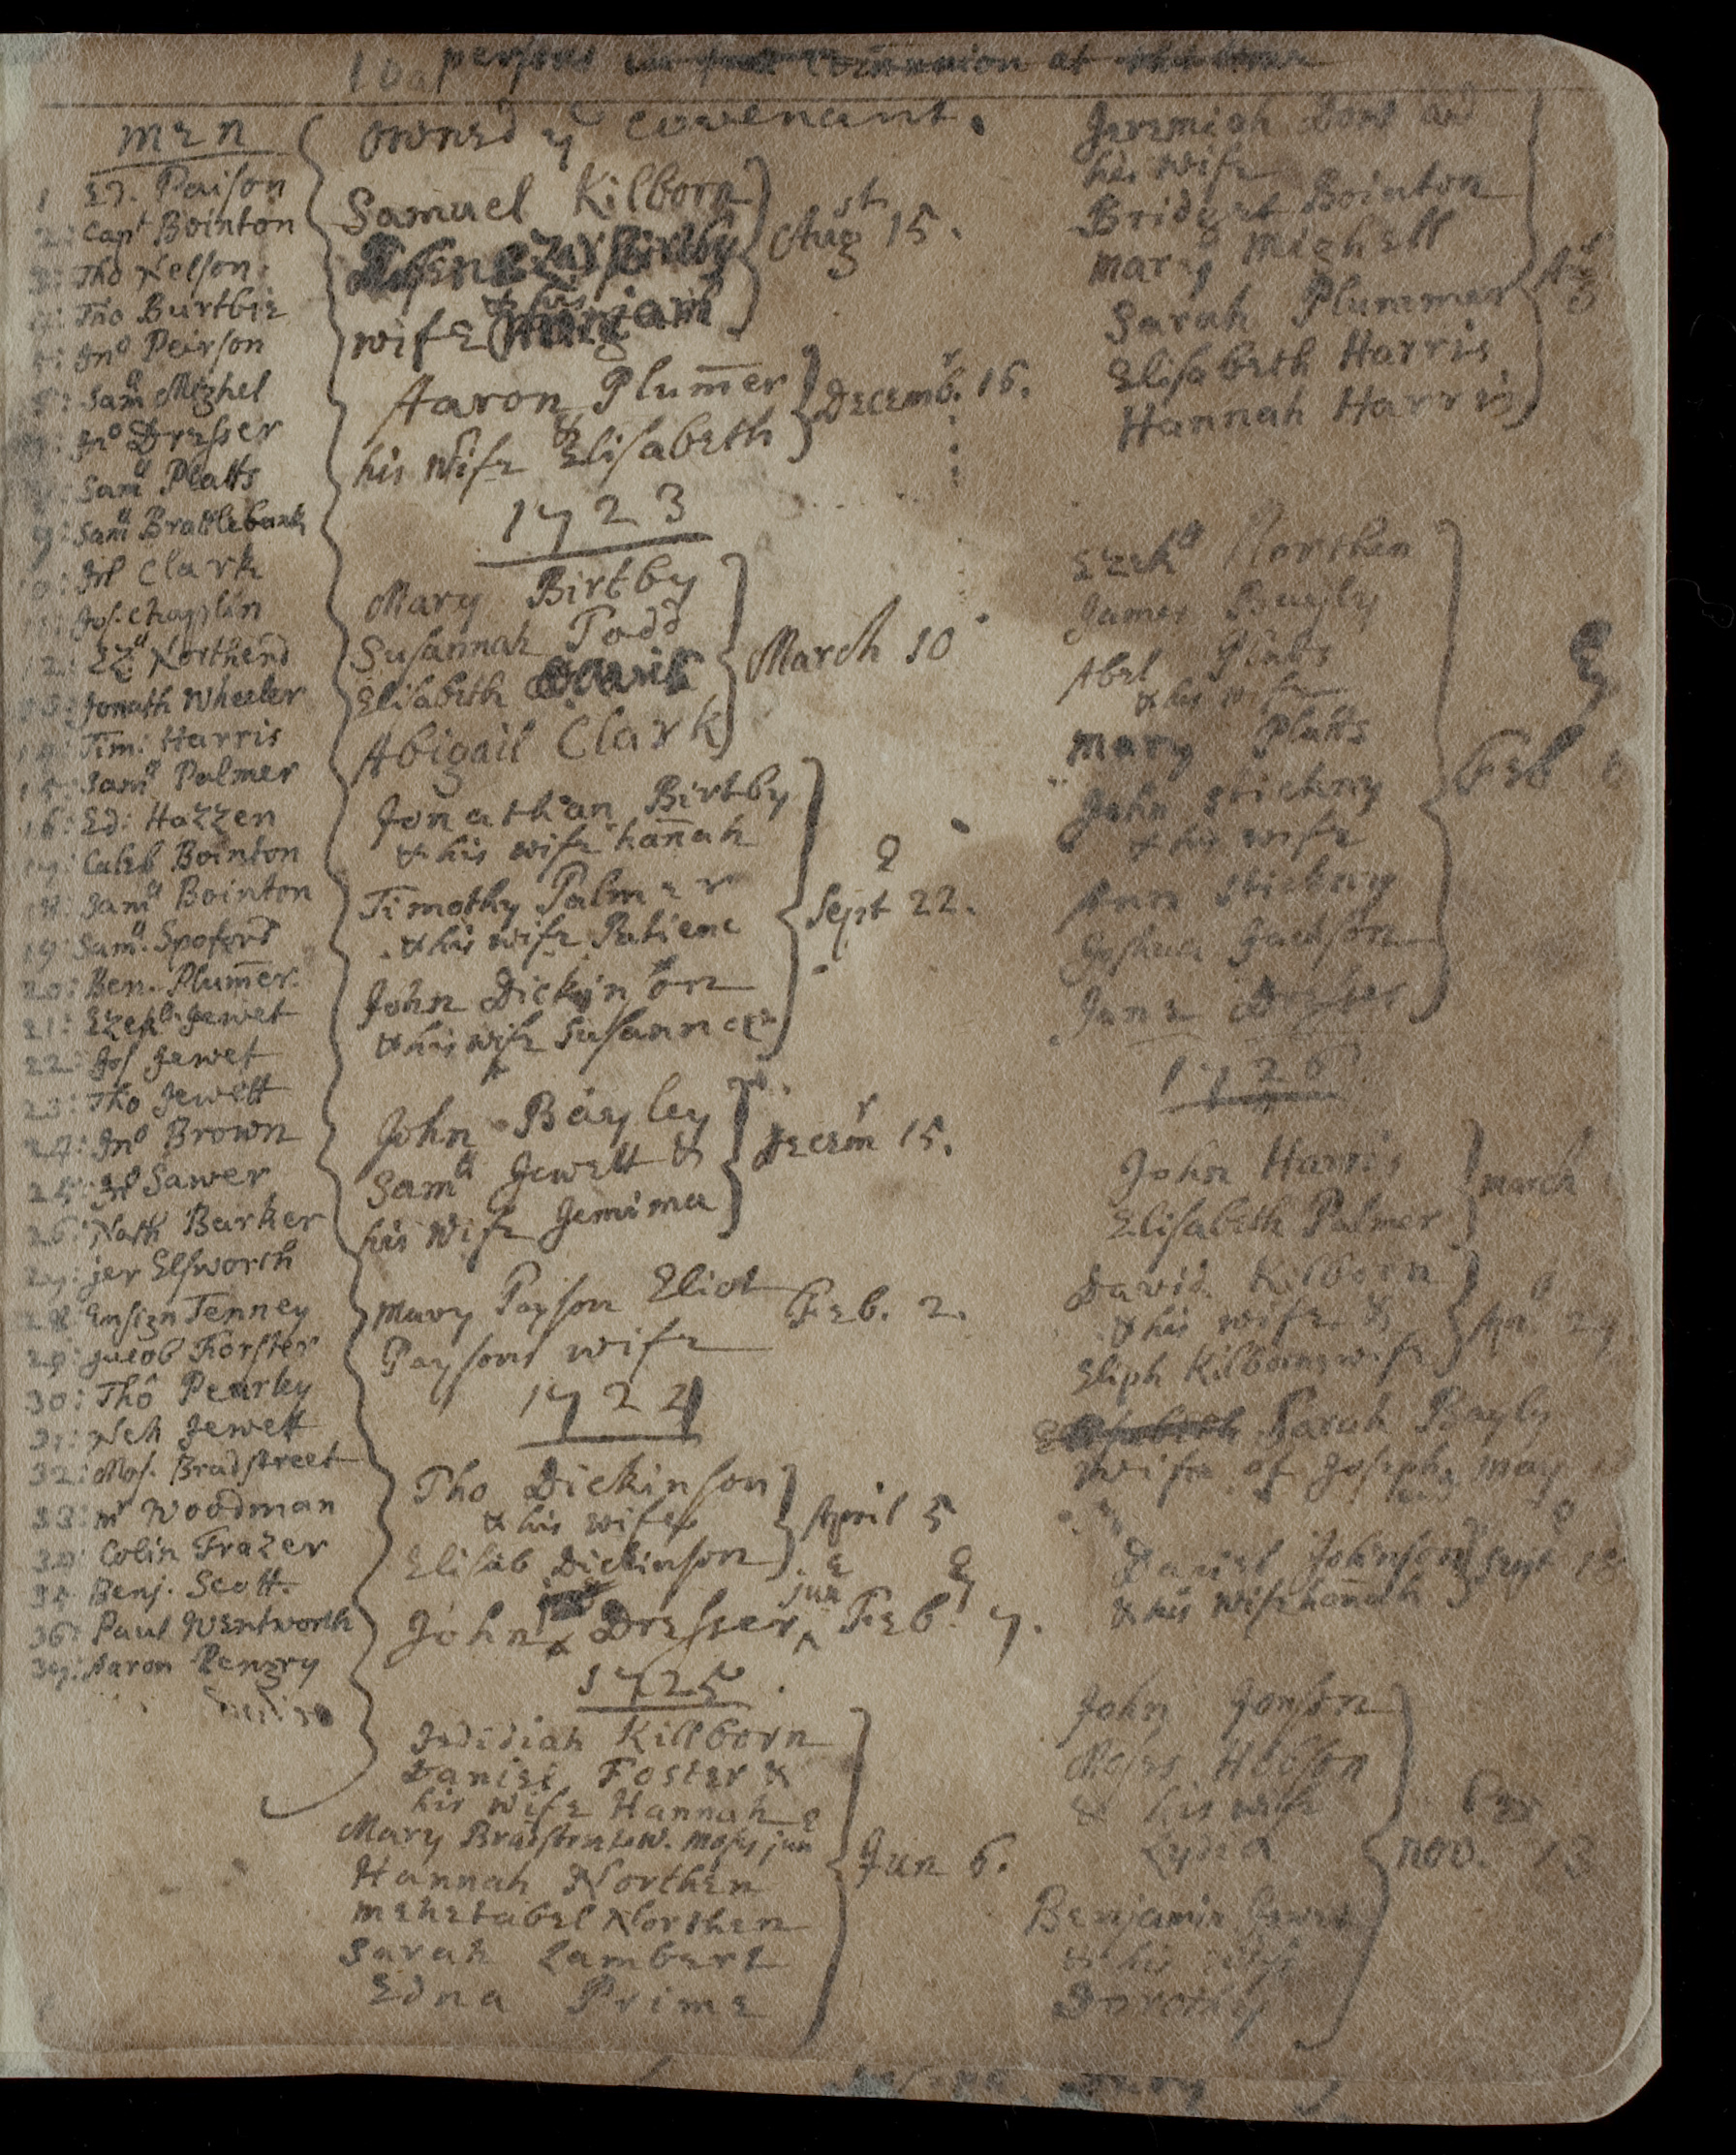 persons communion at
men
1 Ez. Paison
2: Capt Bointon
3: Tho Nelson
4: Tho Burtbie
5: Jno Peirson
6: Samll Mighel
7: Jno Dresser
8: Samll Platts
9: Samll Bradlebank
10: Clark
11: Jos. Chaplin
12: Ezll Northend
13: Jonath Wheeler
14: Tim: Harris
15: Samll Palmer
16: Ed: Hazzen
17: Caleb Bointon
18: Samll Bointon
19: Samll Spoford
20: Ben. Plum̅er
21: Ezekll Jewet
22: Jos Jewet
23: Tho Jewett
24: Jno Brown
25: Sawer
26: Nath Barker
27: jer Elsworth
28: Ensign Tenney
29: Jacob Forster
30: Tho Pearley
31: Neh Jewett
32: Mos. Bradstreet
33: mr Woodman
34: Colin Frazer
35 Benj. Scott
36: Paul Wentworth
37: Aaron Pengry
owned y covenant.
Samuel Kilborn
Ebenezar Birtby
& his
wife Mirriam
Augst 15.
Aaron Plum̅er
&
his Wife Elisabeth
Decembr. 16.
1723
Mary Birtby
Susannah Todd
Elisabeth Davis
Abigail Clark
March 10
Jonathan Birtby
& his wife han̅ah
Timothy Palmer
& his wife Patienc
John Dickinson
& his wife Susanna
Sept 22.
John Bayley
Samll Jewett &
his Wife Jemima
Decemr 15.
Mary Payson Eliot
Paysons wife
Feb. 2.
1724
Tho Dickinson
& his wife
Elisab Dickinson
April 5
John Dresser jun Feb. 7.
1725
Jedidiah Killborn
Daniel Foster &
his wife Hannah
Mary Bradstreet W. Moses jun
Hannah Northen
Mehetabel Northen
Sarah Lambert
Edna Prime
Jun 6.
Jeremiah Dow and
his wife
Bridget Bointon
mary Mighell
Sarah Plummer
Elisabeth Harris
Hannah Harris
Aug
Ezekll Northen
James Bayly
Abel Platts
& his wife
mary Platts
John Stickny
& his wife
Ann Stickny
Joshua Jackson
Jane Dresser
Feb 6
1726
John Harris
Elisabeth Palmer
march
David Kilborn
& his wife &
Eliph Kilborns wife
Ap. 24.
Elisabeth Sarah Bayly
wife of Joseph, may
Daniel Johnson
& his wife han̅ah
Sept 18
John Jonson
Moses Hobson
& his wife
Lydia
Benjamin Jewet
& his wife
Dorothy
nov. 13